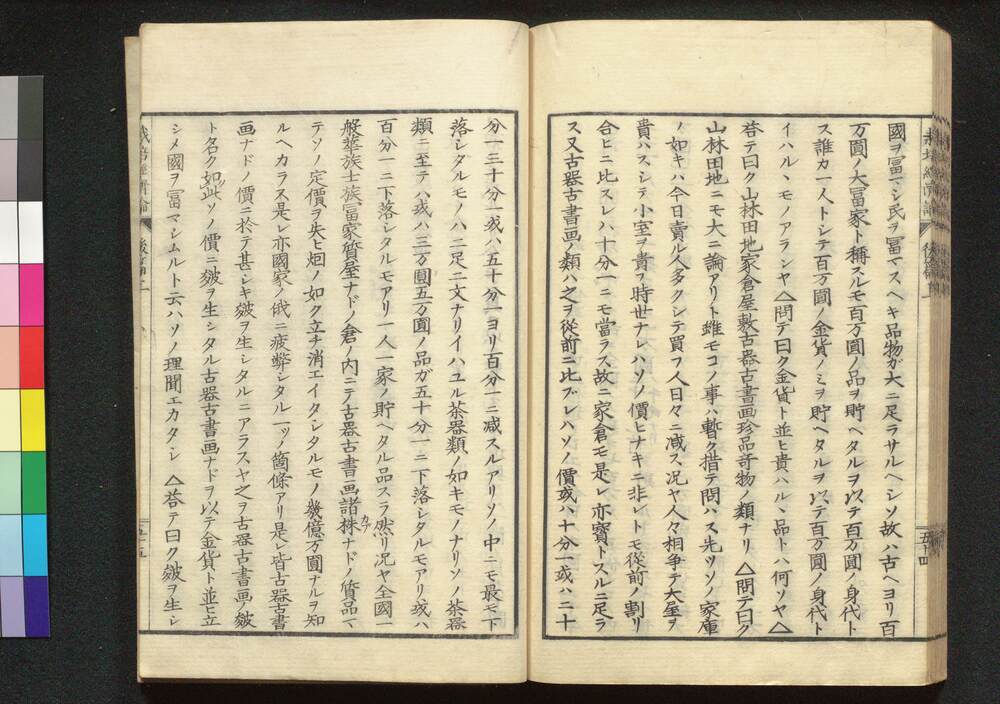 國ヲ冨マシ民ヲ冨マスヘキ品物ガ大ニ足ラサルヘシソ故ハ古ヘヨリ百
万圓ノ大冨家ト稱スルモ百万圓ノ品ヲ貯ヘタルヲ以テ百万圓ノ身代ト
ス誰カ一人トシテ百万圓ノ金貨ノミヲ貯ヘタルヲ以テ百万圓ノ身代ト
イハルヽモノアランヤ△問テ曰ク金貨ト並ヒ貴ハルヽ品トハ何ソヤ△
荅テ曰ク山林田地家倉屋敷古器古書画珍品竒物ノ類ナリ△問テ曰ク
山林田地ニモ大ニ論アリト雖モコノ事ハ暫ク措テ問ハス先ツソノ家庫
ノ如キハ今日賣ル人多クシテ買フ人日々ニ减ス况ヤ人々相争テ大屋ヲ
貴ハスシテ小室ヲ貴ス時世ナレハソノ價ヒナキニ非レトモ從前ノ割リ
合ヒニ比スレハ十分一ニモ當ラス故ニ家倉モ是レ亦寳トスルニ足ラ
ス又古器古書画ノ類ハ之ヲ從前ニ比ブレハソノ價或ハ十分一或ハ二十
五十四
分一三十分一或ハ五十分一ヨリ百分一ニ减スルアリソノ中ニモ最モ下
落シタルモノハ二足二文ナリイハユル茶器類ノ如キモノナリソノ茶器
類ニ至テハ或ハ三万圓五万圓ノ品ガ五十分一ニ下落シタルモアリ或ハ
百分一ニ下落シタルモアリ一人一家ノ貯ヘタル品スラ然リ况ヤ全國一
般華族士族冨家質屋ナドノ倉ノ内ニテ古器古書画諸株ナドノ質品マ
カブ
テソノ定價ヲ失ヒ烟ノ如ク立チ消エイタシタルモノ幾億万圓ナルヲ知
ルヘカラス是レ亦國家ノ俄ニ疲弊シタル一ツノ箇條アリ是レ皆古器古書
画ナドノ價ニ於テ甚シキ皴ヲ生シタルニアラスヤ之ヲ古器古書画ノ皴
ト名ク如此ソノ價ニ皴ヲ生シタル古器古書画ナドヲ以テ金貨ト並ヒ立
シメ國ヲ冨マシムルト云ハソノ理聞エカタシ △荅テ曰ク皴ヲ生シ
經濟論
後編二
五十五